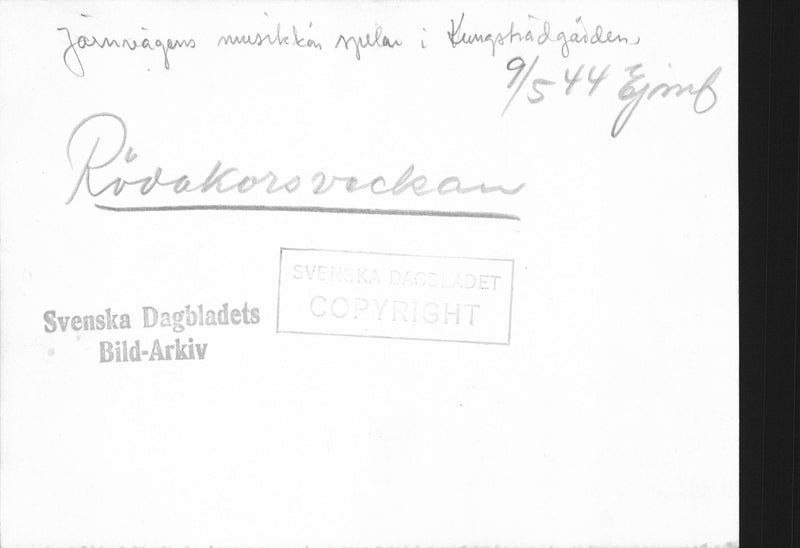 Järnvägens musikkår spelar i Kungsträdgården.
9/5 44 Ej inf
Rödakorsveckan
SVENSKA DAGBLADET
COPYRIGHT
Svenska Dagbladets
Bild-Arkiv